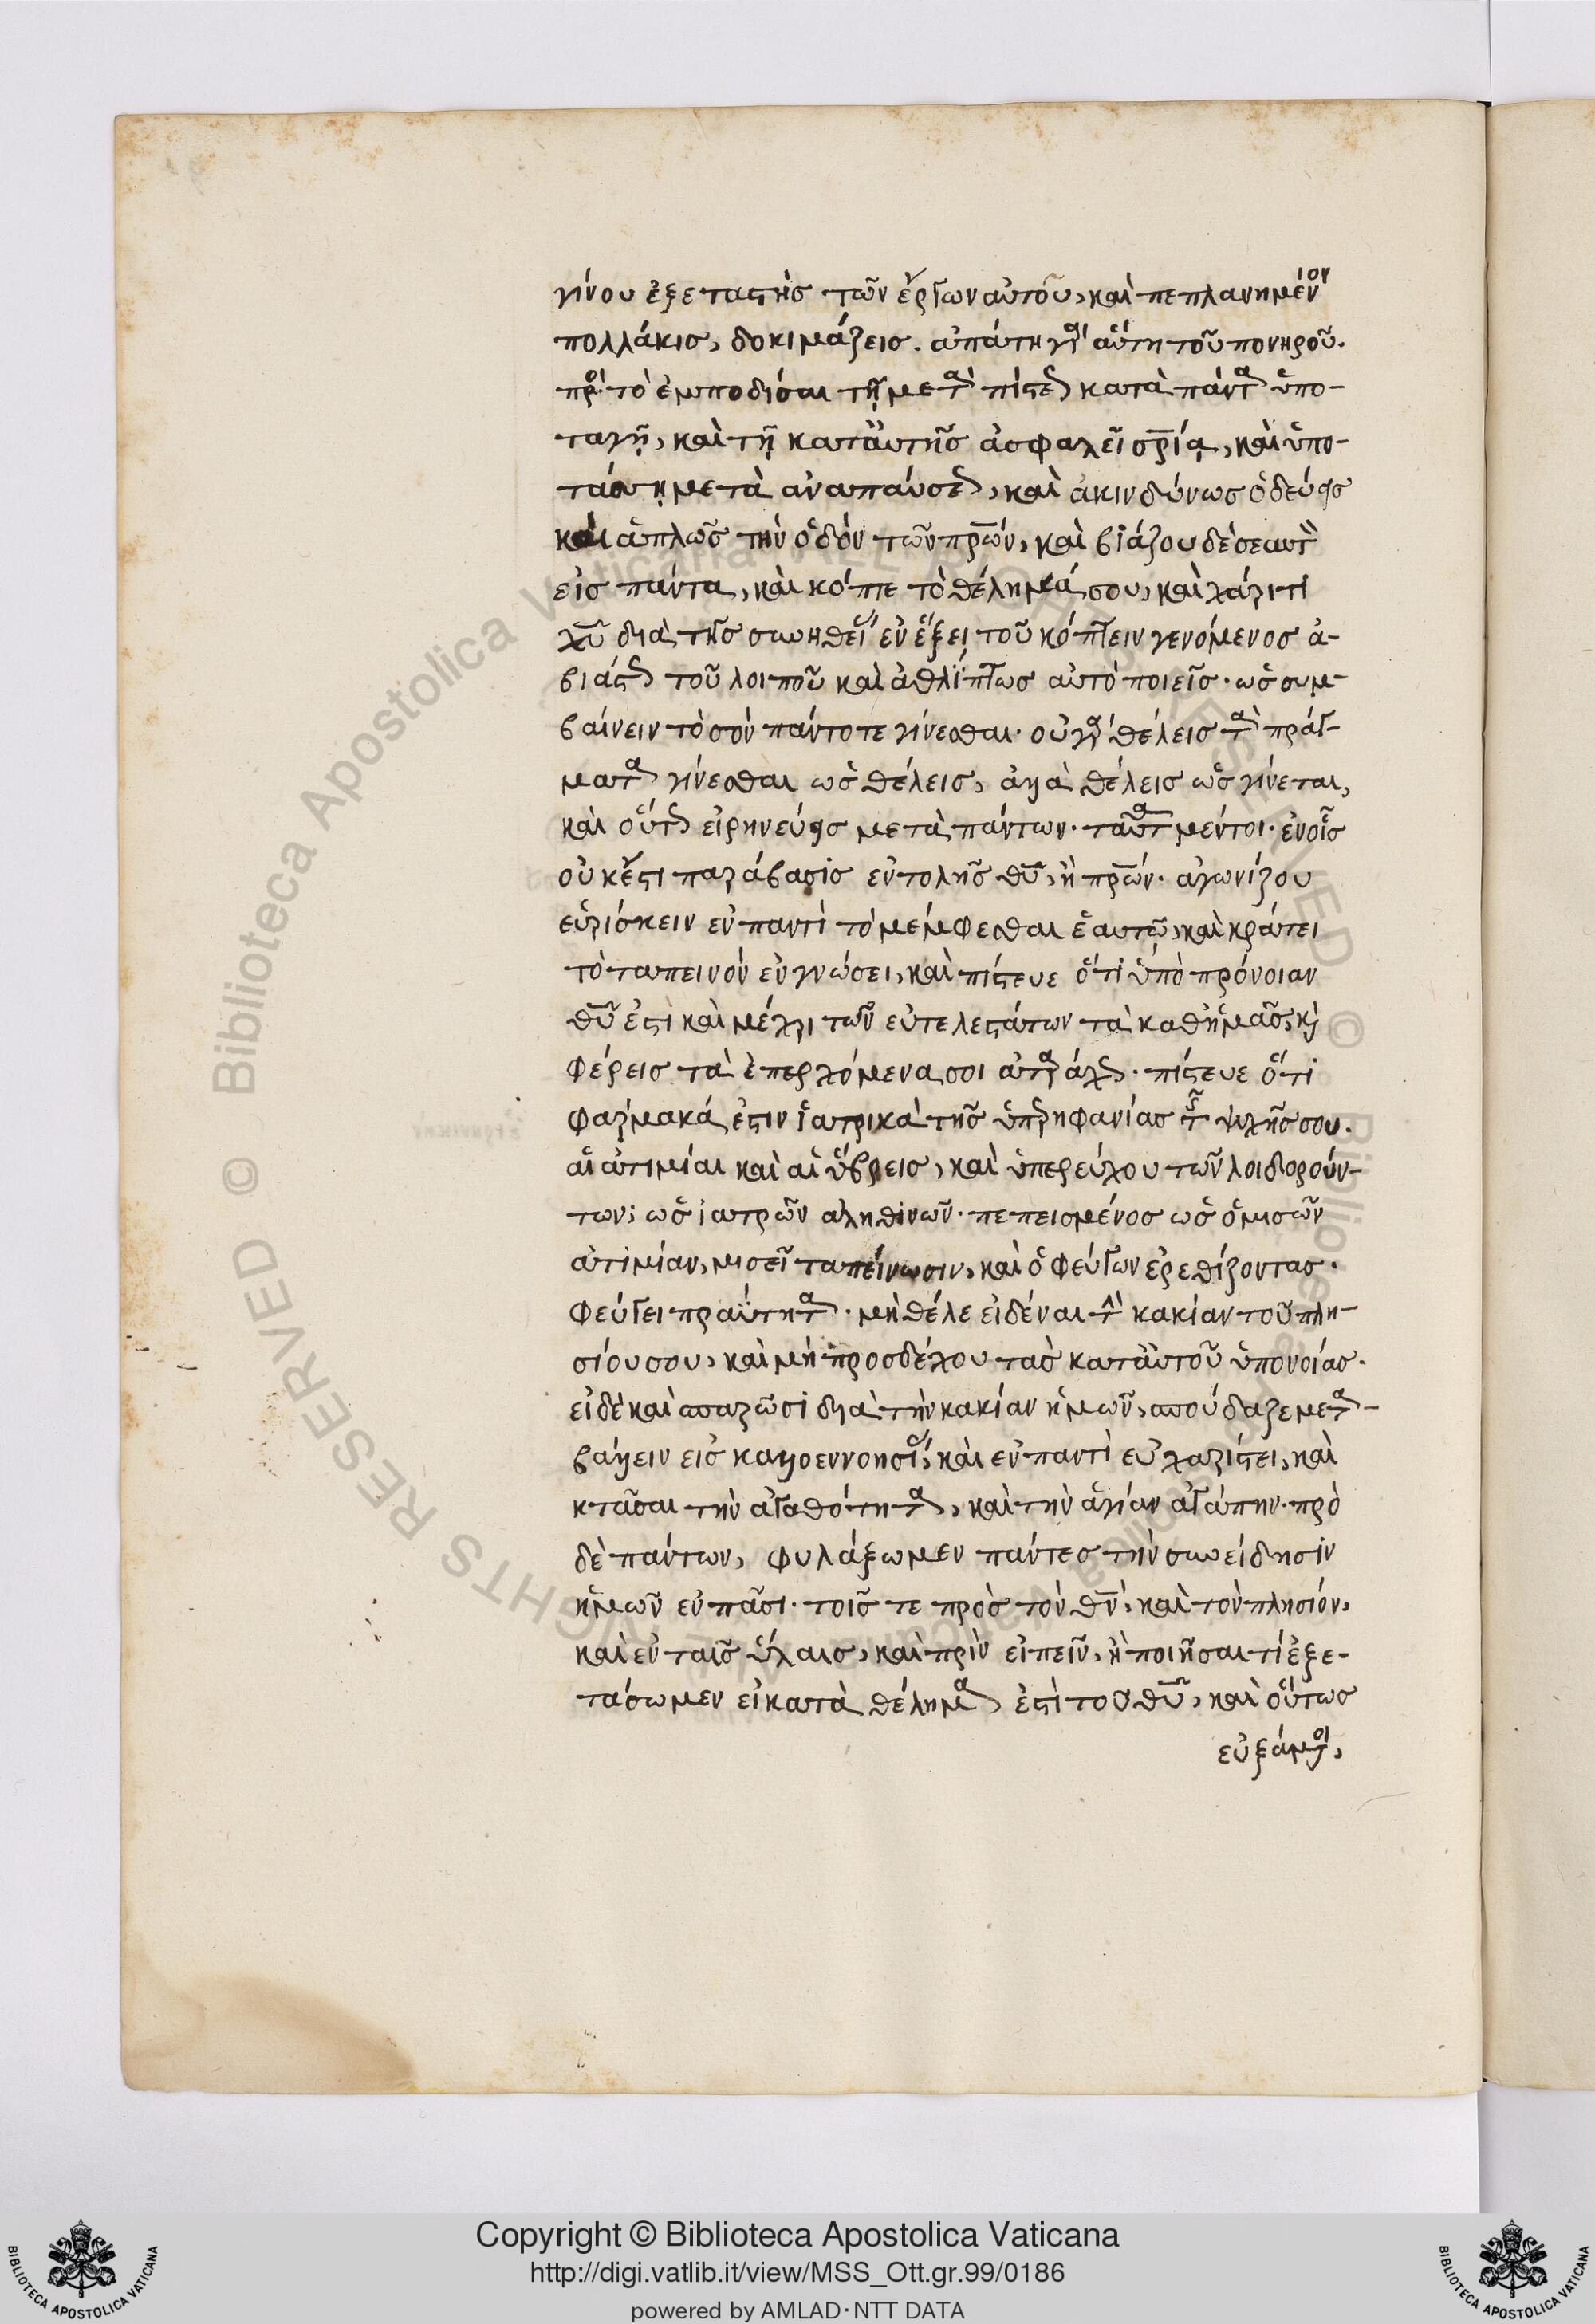 γίνου ἐξεταστὴσ τῶν ἔργων αὐτοῦ, καὶ πεπλανημένον
πολλάκισ, δοκιμάζεισ. ἀπάτη γὰρ αὕτη τοῦ πονηροῦ.
πρὸς τὸ ἐμποδίσαι τῇ μετὰ πίστεως κατὰ πάντα ὑπο-
ταγῇ, καὶ τῇ κατ' αὐτῆσ ἀσφαλεῖ σρίᾳ, καὶ ὑπο-
τάσσῃ μετὰ ἀναπαύσεως, καὶ ἀκινδύνωσ ὁδεύεισ
καὶ ἁπλῶσ τὴν ὁδὸν τῶν πρῶν, καὶ βιάζου δὲ σεαυτὸν
εἰσ πάντα, καὶ κόπτε τὸ θέλημά σου, καὶ χάριτι
χῦ διὰ τῆσ συνηθείας ἐν ἕξει τοῦ κόπτειν γενόμενοσ ἀ-
βιάστως τοῦ λοιποῦ καὶ ἀθλίπτωσ αὐτὸ ποιεῖσ. ὡσ συμ-
βαίνειν τὸ σὸν πάντοτε γίνεσθαι. οὐ γὰρ θέλεισ τὰ πράγ-
ματα γίνεσθαι ὡσ θέλεισ, ἀλλὰ θέλεισ ὡσ γίνεται,
καὶ οὕτως εἰρηνεύεισ μετὰ πάντων. ταῦτα μέντοι. ἐν οἷσ
οὐκ ἔστι παράβασισ ἐντολῆσ θῦ, ἢ πρῶν. ἀγωνίζου
εὑρίσκειν ἐν παντὶ τὸ μέμφεσθαι ἑαυτῷ, καὶ κράτει
τὸ ταπεινὸν ἐν γνώσει, καὶ πίστευε ὅτι ὑπὸ πρόνοιαν
θῦ ἐστὶ καὶ μέχρι τῶν εὐτελεστάτων τὰ καθ' ἡμᾶσ, καὶ
φέρεισ τὰ ἐπερχόμενα σοι ἀταράχως. πίστευε ὅτι
φάρμακά ἐστιν ἰατρικὰ τῆσ ὑπερηφανίασ τῆς ψυχῆσ σου.
αἱ ἀτιμίαι καὶ αἱ ὕβρεισ, καὶ ὑπερεύχου τῶν λοιδορούν-
των, ὡσ ἰατρῶν ἀληθινῶν. πεπεισμένοσ ὡσ ὁ μισῶν
ἀτιμίαν, μισεῖ ταπείνωσιν, καὶ ὁ φεύγων ἐρεθίζοντασ.
φεύγει πραΰτητα. μὴ θέλε εἰδέναι τὴν κακίαν τοῦ πλη-
σίου σου, καὶ μὴ προσδέχου τὰσ κατ' αὐτοῦ ὑπονοίασ.
εἰ δὲ καὶ σπαρῶσι διὰ τὴν κακίαν ἡμῶν, σπούδαζε μετα-
βάλλειν εἰσ καλλοεννοησίας, καὶ ἐν παντὶ εὐχαρίστει, καὶ
κτᾶσαι τὴν ἀγαθότητα, καὶ τὴν ἁγίαν ἀγάπην. πρὸ
δὲ πάντων, φυλάξωμεν πάντεσ τὴν συνείδησιν
ἡμῶν ἐν πᾶσι. τοῖσ τε πρὸσ τὸν θν, καὶ τὸν πλησίον,
καὶ ἐν ταῖσ ὕλαισ, καὶ πρὶν εἰπεῖν, ἢ ποιῆσαι τί ἐξε-
τάσωμεν εἰ κατὰ θέλημα ἐστὶ τοῦ θῦ, καὶ οὕτωσ
εὐξάμενοι,
Copyright © Biblioteca Apostolica Vaticana
http://digi.vatlib.it/view/MSS_Ott.gr.99/0186
powered by AMLAD·NTT DATA
BIBLIOTECA APOSTOLICA VATICANA
BIBLIOTECA APOSTOLICA VATICANA